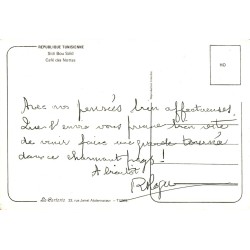 REPUBLIQUE TUNISIENNE
Sidi Bou Saïd
Café des Nattes
Avec nos pensées bien affectueuses.
Que l'envie vous prenne bien vite
de venir faire une grande tournée
dans ce charmant pays !
A bientôt !
22, rue Jamel Abdennasser - TUNIS